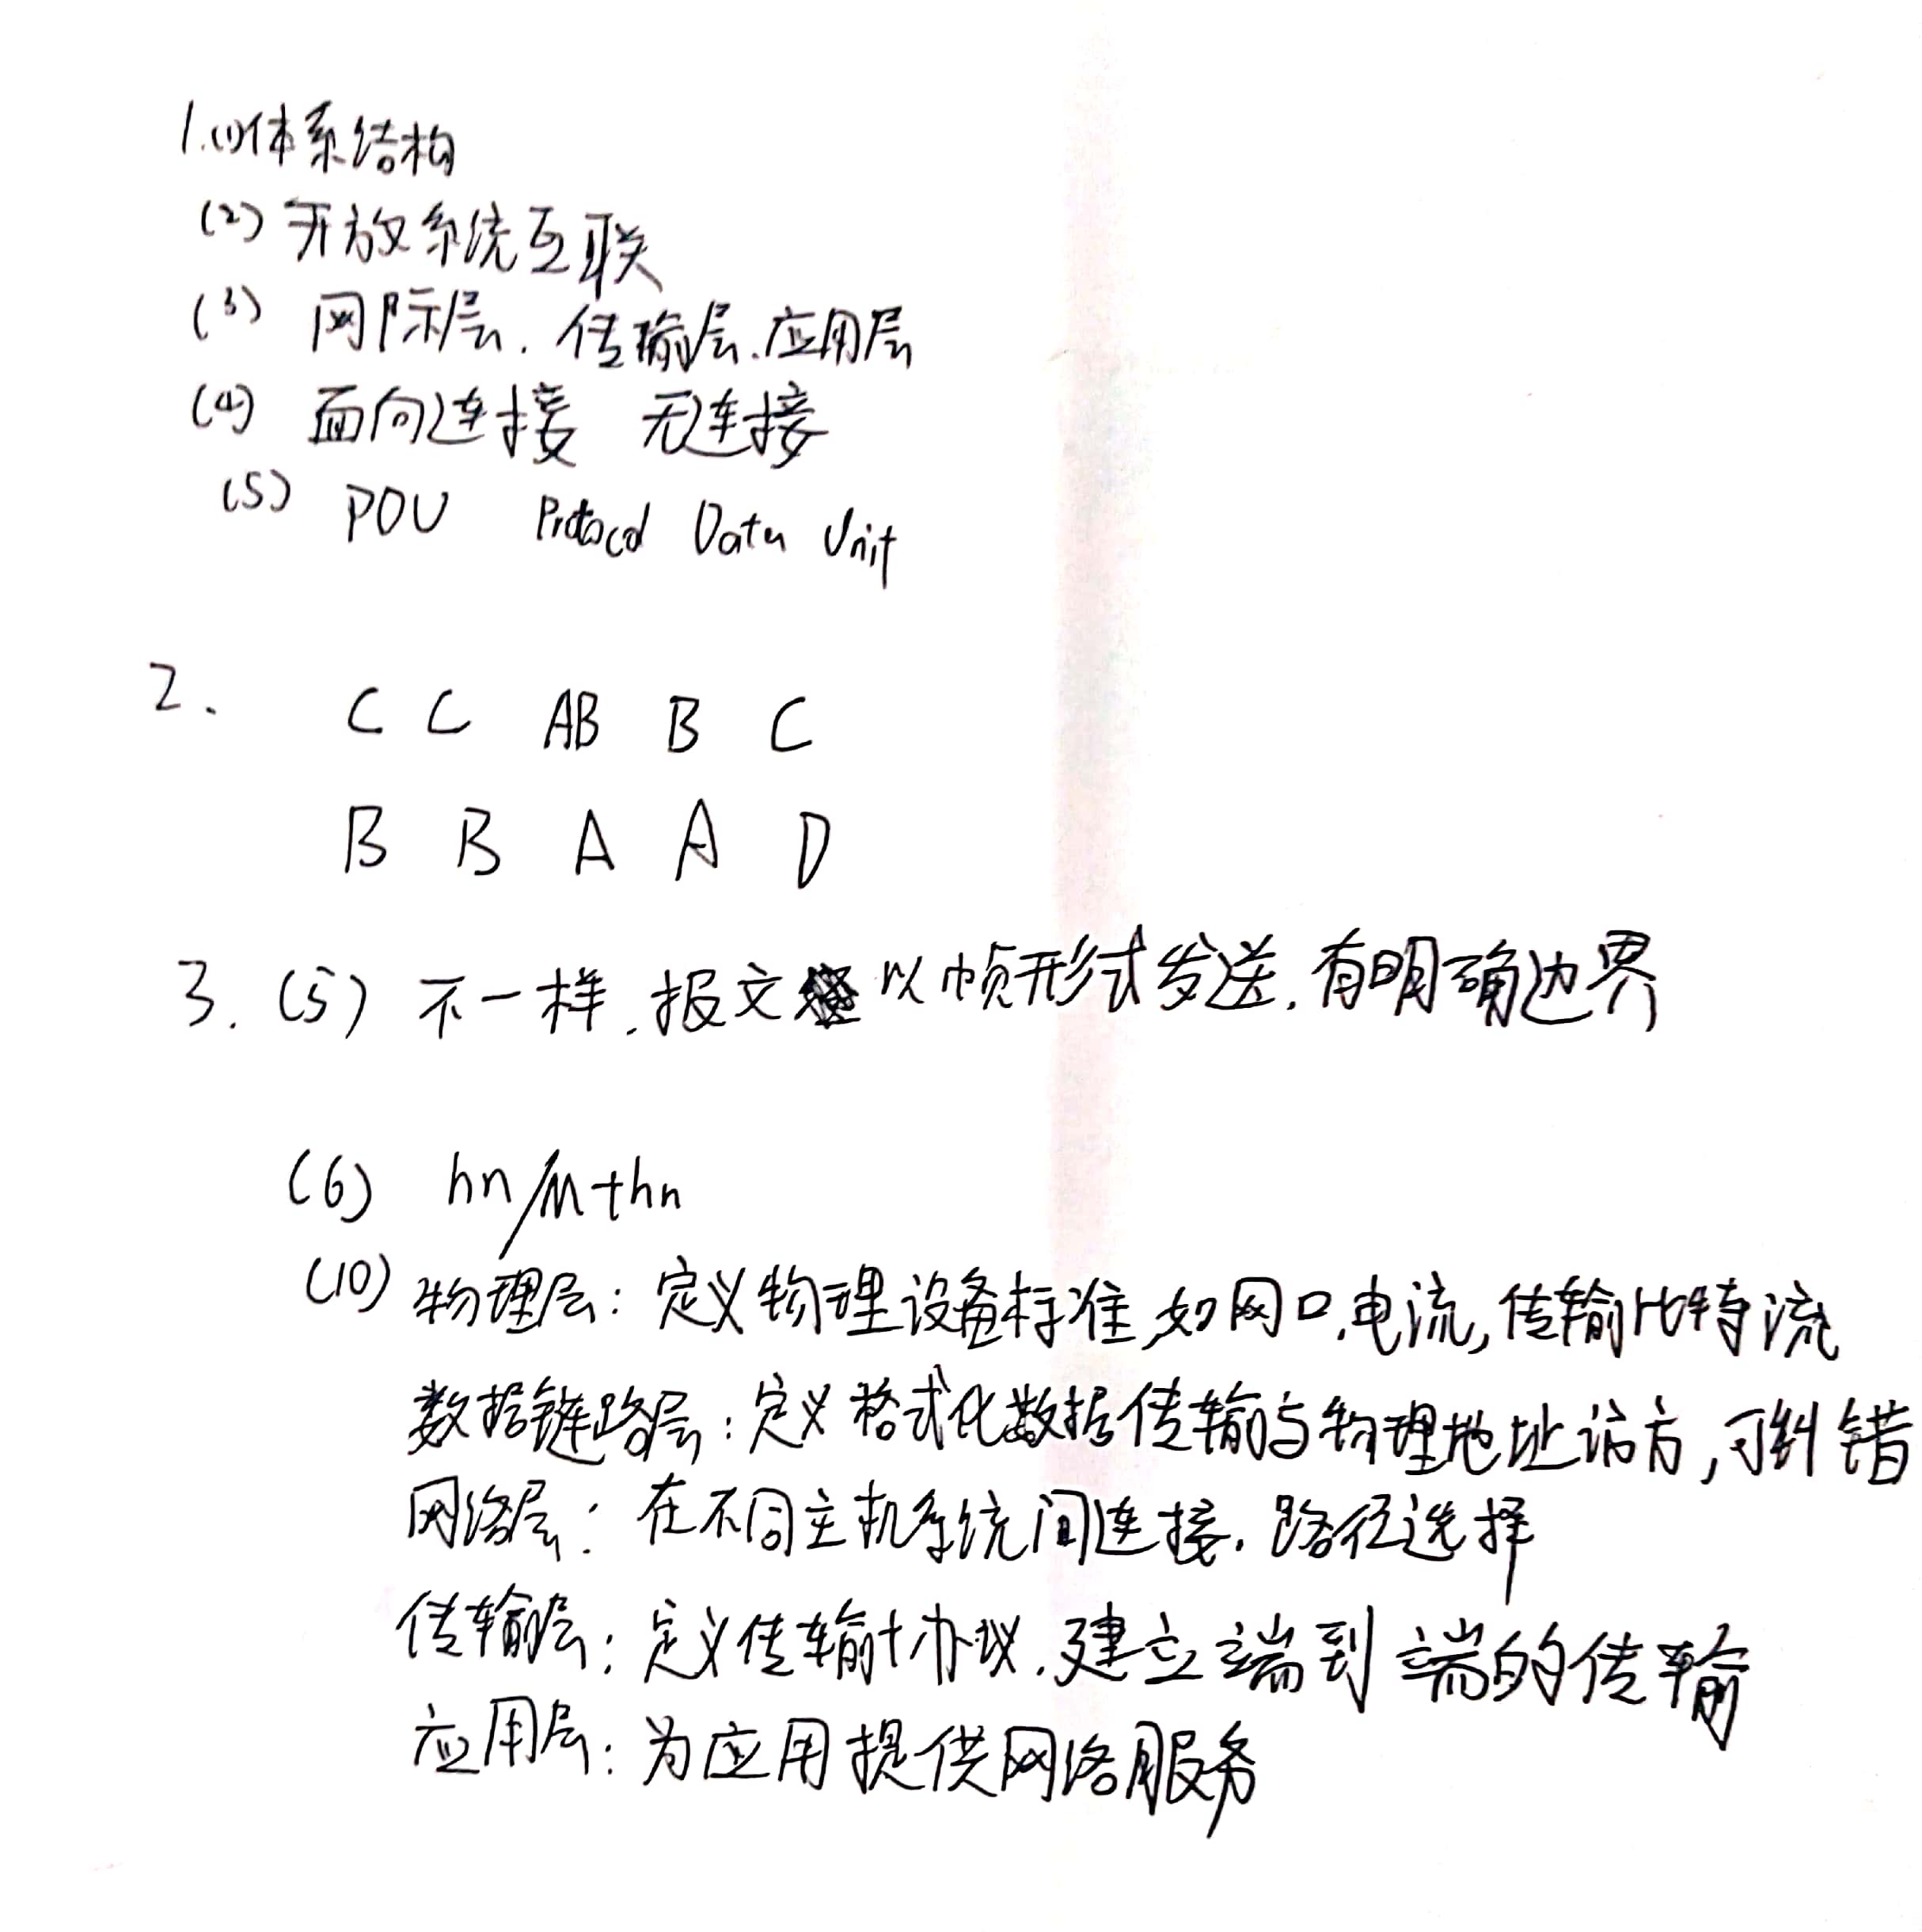 1.(1)体系结构
(2) 开放系统互联
(3) 网际层.传输层.应用层
(4) 面向连接 无连接
(5) PDU Protocol Data Unit
2. C C AB B C
B B A A D
3. (5) 不一样.报文以帧形式发送.有明确边界
(6) hn/M+hn
(10) 物理层:定义物理设备标准,如网口.电流,传输比特流
数据链路层:定义格式化数据传输与物理地址访方,可纠错
网络层:在不同主机系统间连接.路径选择
传输层:定义传输协议.建立端到端的传输
应用层:为应用提供网络服务